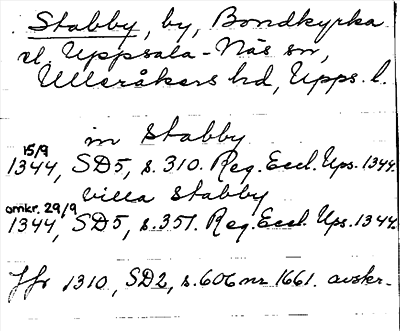 Stabby, by, Bondkyrka
el. Uppsala-Näs sn,
Ulleråkers hd, Upps. l.
in Stabby
15/9
1344, SD5, s. 310. Reg. Eccl. Ups. 1344.
villa Stabby
omkr. 29/9
1344, SD5, s. 351. Reg. Eccl. Ups. 1344.
Jfr 1310, SD2, s. 606 nr 1661. avskr.